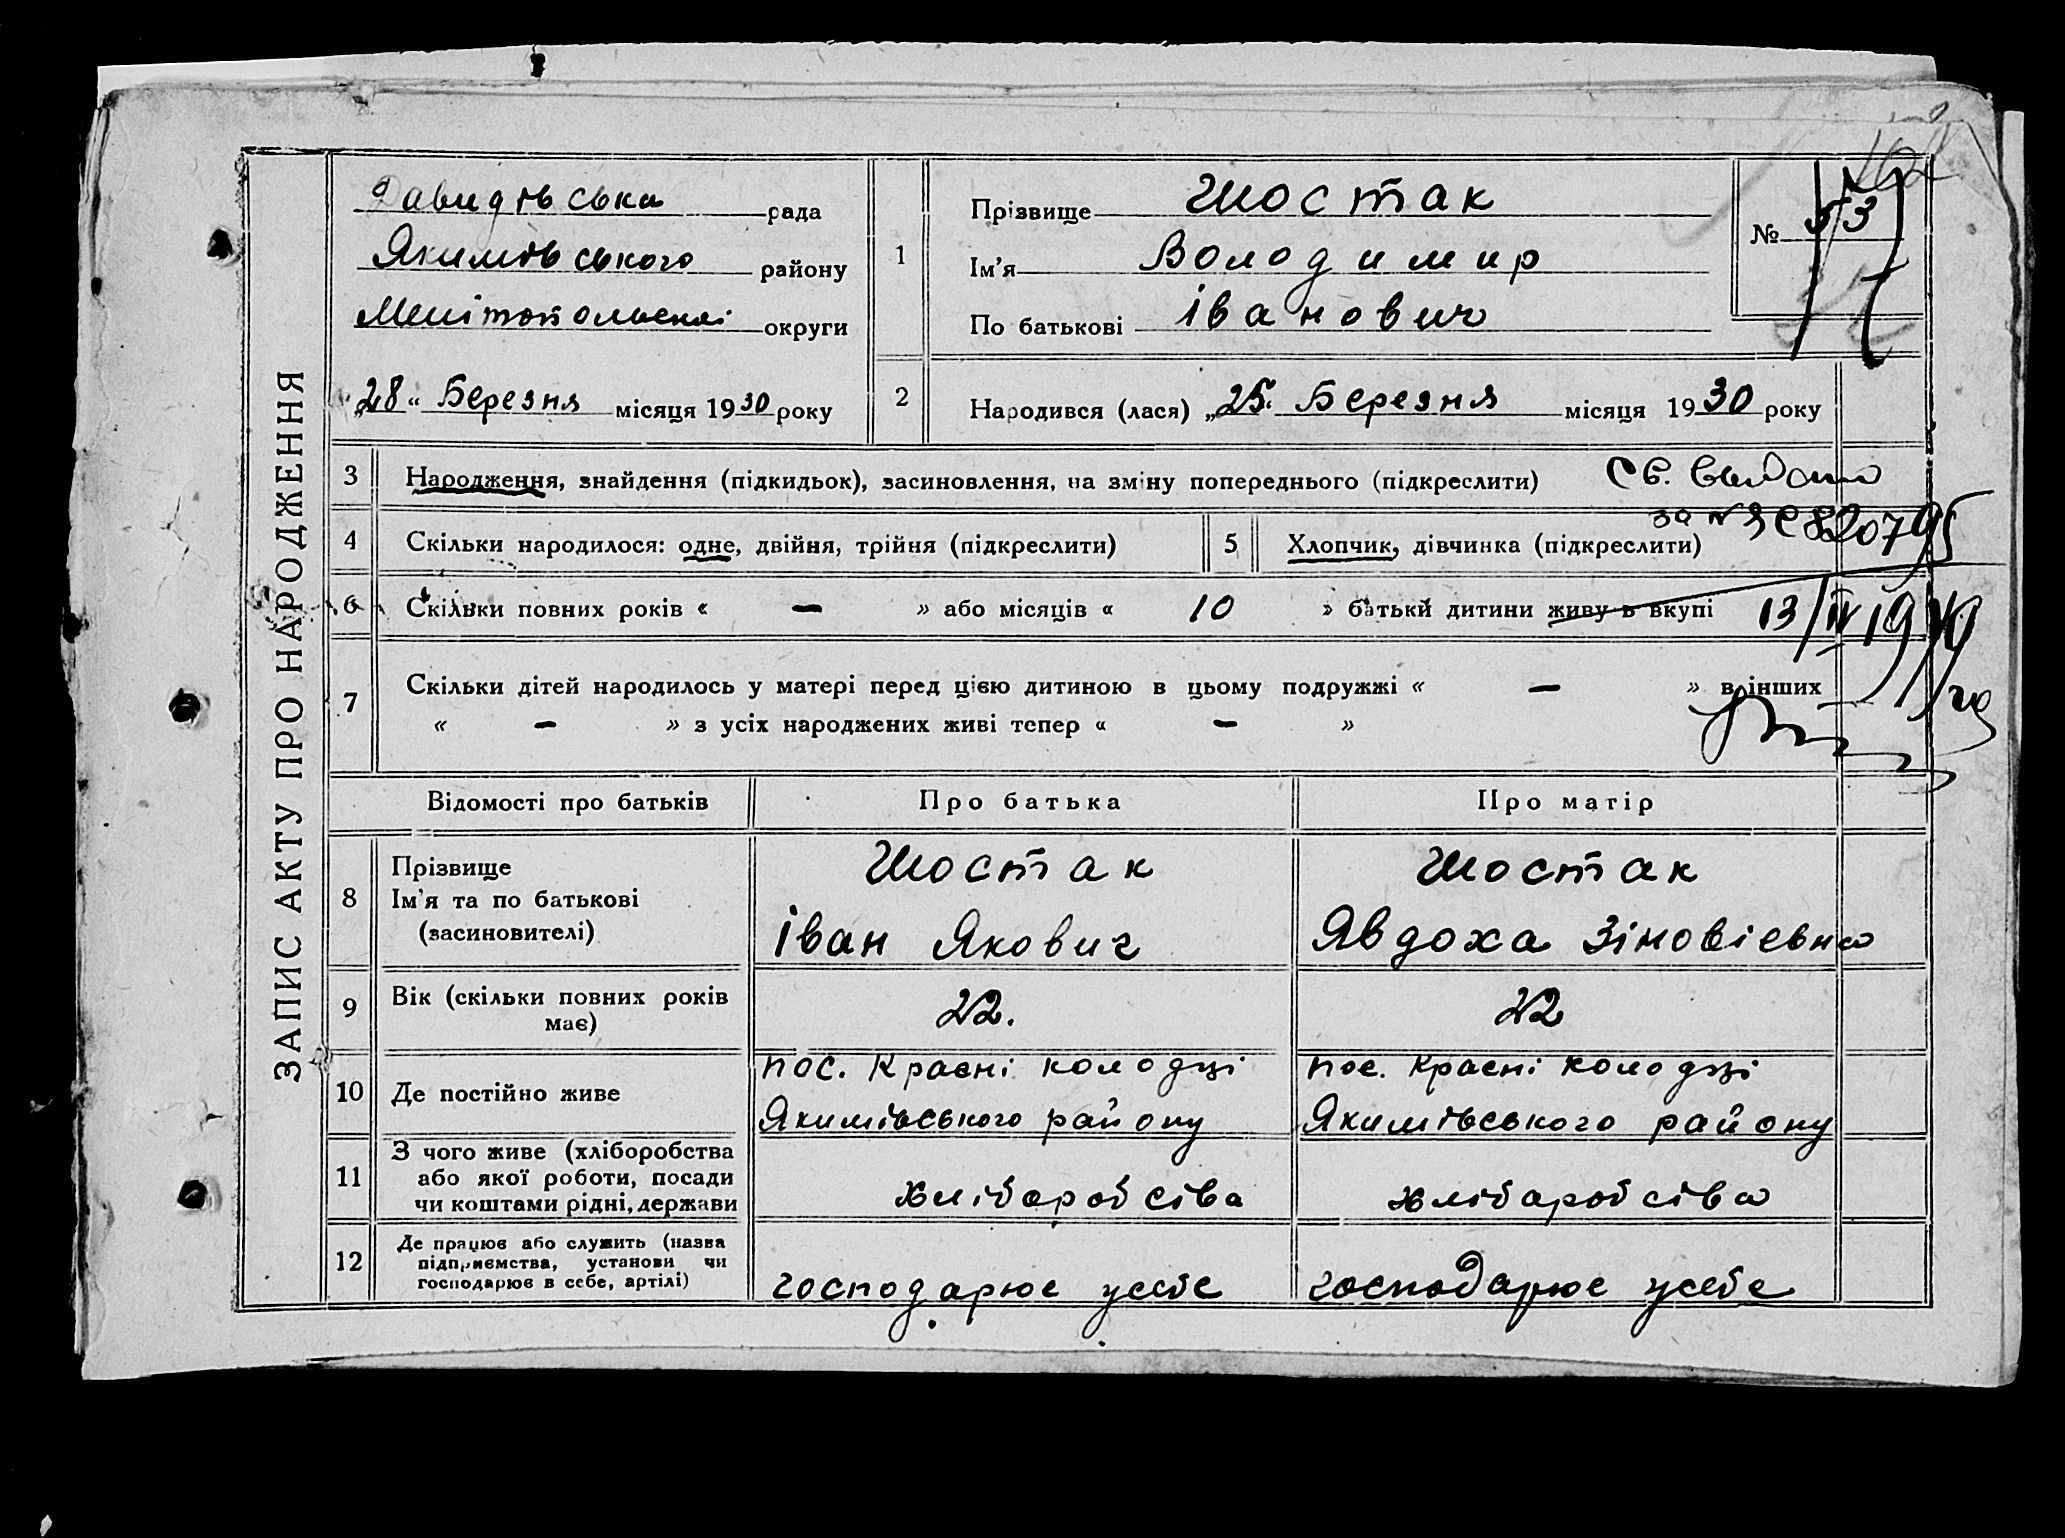 ЗАПИС АКТУ ПРО НАРОДЖЕННЯ
Давидівська рада
Якимівського району
Мелітопольської округи
„28“ Березня місяця 1930 року
1
Прізвище Шостак
Ім'я Володимир
По батькові Іванович
№ 53
162
2 Народився (лася) „25“ Березня місяця 1930 року
3 Народження, знайдення (підкидьок), засиновлення, на зміну попереднього (підкреслити)
Св. выдано
за № ЯС 820795
4 Скільки народилося: одне, двійня, трійня (підкреслити) 5 Хлопчик, дівчинка (підкреслити)
6 Скільки повних років « — » або місяців « 10 » батьки дитини живуть вкупі
13/IV 1940 го
7 Скільки дітей народилось у матері перед цією дитиною в цьому подружжі « — » в інших
« — » з усіх народжених живі тепер « — »
Відомості про батьків Про батька Про матір
8 Прізвище Шостак Шостак
Ім'я та по батькові
(засиновителі) Іван Якович Явдоха Зіновієвна
9 Вік (скільки повних років
має) 22. 22
10 Де постійно живе
пос. Краєні колодзі пос. Краєні колодзі
Якимівського району Якимівського району
11 З чого живе (хліборобства
або якої роботи, посади
чи коштами рідні, держави
хліборобсіва хліборобсіва
12 Де працює або служить (назва
підприємства, установи чи
господарює в себе, артілі)
господарює усебе господарює усебе